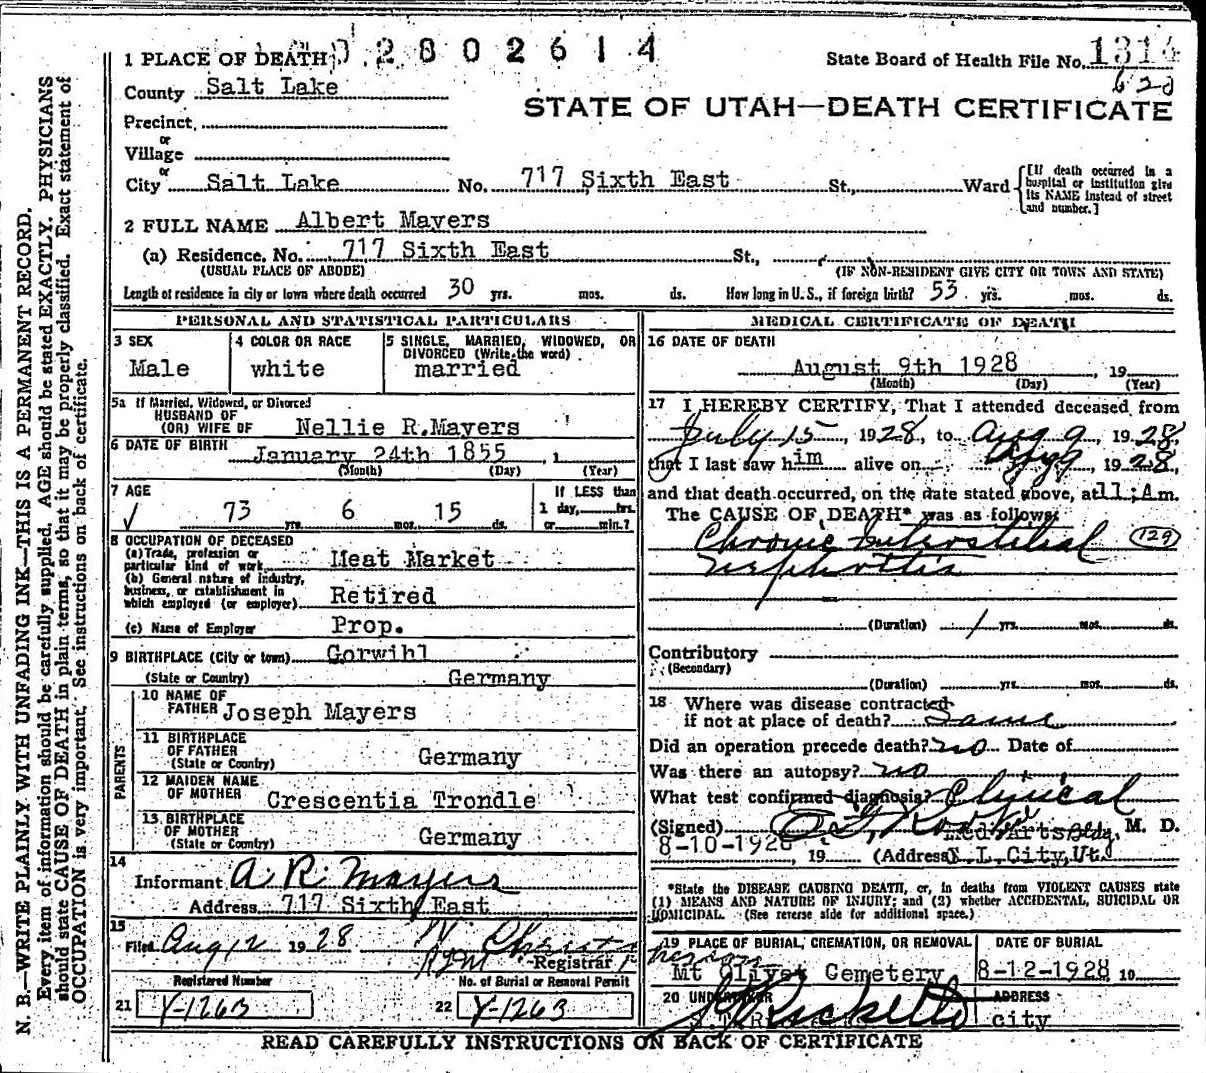 N. B.—WRITE PLAINLY WITH UNFADING INK—THIS IS A PERMANENT RECORD.
Every item of information should be carefully supplied. AGE should be stated EXACTLY. PHYSICIANS
should state CAUSE OF DEATH in plain terms, so that it may be properly classified. Exact statement of
OCCUPATION is very important. See instructions on back of certificate.
1 PLACE OF DEATH 02802614 State Board of Health File No. 1314
628
County Salt Lake
STATE OF UTAH—DEATH CERTIFICATE
Precinct
or
Village
or
City Salt Lake No. 717 Sixth East St., Ward
[If death occurred in a
hospital or institution give
its NAME instead of street
and number.]
2 FULL NAME Albert Mayers
(a) Residence. No. 717 Sixth East St.,
(USUAL PLACE OF ABODE) (IF NON-RESIDENT GIVE CITY OR TOWN AND STATE)
Length of residence in city or town where death occurred 30 yrs. mos. ds. How long in U. S., if foreign birth? 53 yrs. mos. ds.
PERSONAL AND STATISTICAL PARTICULARS
3 SEX
Male
4 COLOR OR RACE
white
5 SINGLE, MARRIED, WIDOWED, OR
DIVORCED (Write the word)
married
5a If Married, Widowed, or Divorced
HUSBAND OF
(OR) WIFE OF Nellie R.Mayers
6 DATE OF BIRTH January 24th 1855 , 1
(Month) (Day) (Year)
7 AGE
73 yrs. 6 mos. 15 ds.
If LESS than
1 day, hrs.
or min.?
8 OCCUPATION OF DECEASED
(a) Trade, profession or
particular kind of work Meat Market
(b) General nature of industry,
business, or establishment in
which employed (or employer) Retired
(c) Name of Employer Prop.
9 BIRTHPLACE (City or town) Gorwihl
(State or Country) Germany
PARENTS
10 NAME OF
FATHER Joseph Mayers
11 BIRTHPLACE
OF FATHER
(State or Country) Germany
12 MAIDEN NAME
OF MOTHER Crescentia Trondle
13 BIRTHPLACE
OF MOTHER
(State or Country) Germany
14
Informant A R. Mayers
Address 717 Sixth East
15
Filed Aug 12 1928
Registrar
Registered Number No. of Burial or Removal Permit
21 Y-1263 22 Y-1263
MEDICAL CERTIFICATE OF DEATH
16 DATE OF DEATH
August 9th 1928 , 19
(Month) (Day) (Year)
17 I HEREBY CERTIFY, That I attended deceased from
July 15, 1928, to Aug 9, 1928,
that I last saw him alive on Aug 9, 1928,
and that death occurred, on the date stated above, at 11;Am.
The CAUSE OF DEATH* was as follows:
Chronic Interstitial 129
nephritis
(Duration) 1 yrs. mos. ds.
Contributory
(Secondary)
(Duration) yrs. mos. ds.
18 Where was disease contracted
if not at place of death? Same
Did an operation precede death? no Date of
Was there an autopsy? no
What test confirmed diagnosis? Clinical
(Signed) Med. Arts Bldg. M. D.
8-10-1928 , 19 (Address) S.L.City,Ut.
*State the DISEASE CAUSING DEATH, or, in deaths from VIOLENT CAUSES state
(1) MEANS AND NATURE OF INJURY; and (2) whether ACCIDENTAL, SUICIDAL OR
HOMICIDAL. (See reverse side for additional space.)
19 PLACE OF BURIAL, CREMATION, OR REMOVAL
Mt Olivet Cemetery
DATE OF BURIAL
8-12-1928 19
20 UNDERTAKER
Ricketts
ADDRESS
city
READ CAREFULLY INSTRUCTIONS ON BACK OF CERTIFICATE